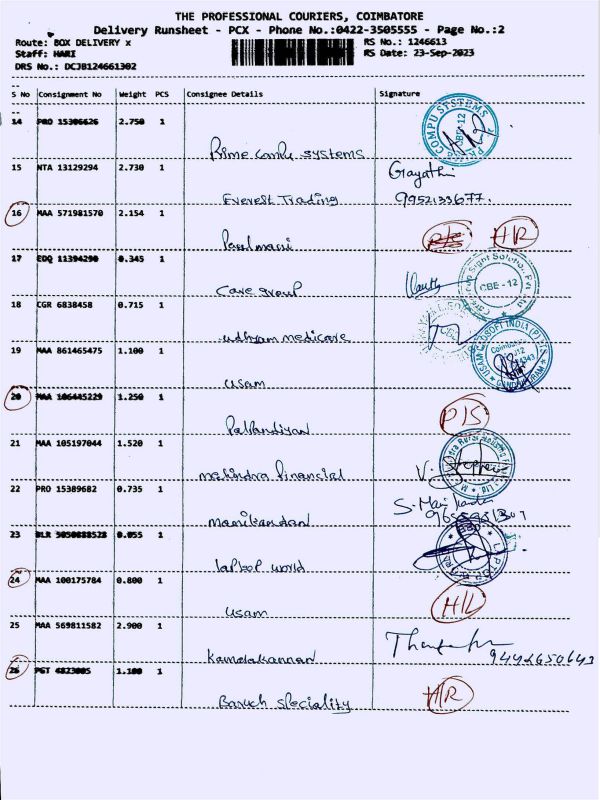 THE PROFESSIONAL COURIERS, COIMBATORE
Delivery Runsheet - PCX - Phone No.:0422-3505555 - Page No.:2
Route: BOX DELIVERY x RS No.: 1246613
Staff: HARI RS Date: 23-Sep-2023
DRS No.: DCJB124661302
S No Consignment No Weight PCS Consignee Details Signature
14 PRO 15306626 2.750 1
Prime Compu systems
COMPU SYSTEMS
CBE-12
15 NTA 13129294 2.730 1
Gayathri
Everest Trading 9952133677.
16 MAA 571981570 2.154 1
Paulmani P/S H/R
17 EDQ 11394290 0.345 1
Care group
CBE - 12
18 CGR 6838458 0.715 1
udhyam medicare
19 MAA 861465475 1.100 1
usam
USAM
20 MAA 106445229 1.250 1
P/S
21 MAA 105197044 1.520 1
mahindra financial V. Stephen
22 PRO 15389682 0.735 1
Manikandan
23 BLR 5050888528 0.055 1
laptop world
24 MAA 100175784 0.800 1
usam H/L
25 MAA 569811582 2.900 1
Kamalakannan 9442650643
26 PGT 4823005 1.100 1
Baruch speciality H/R